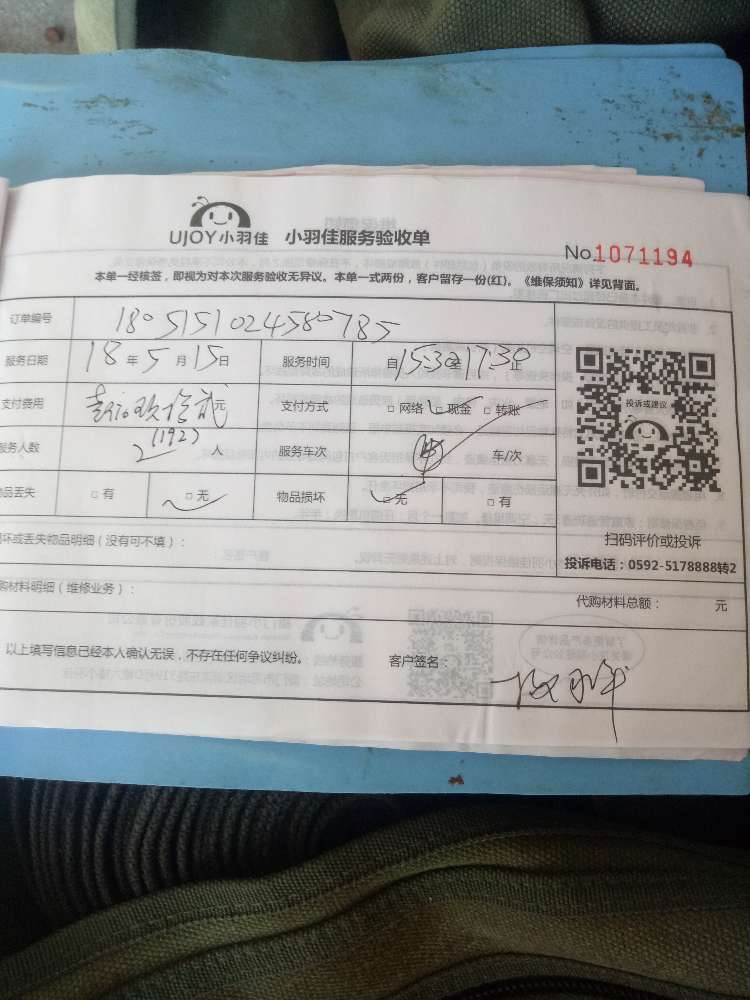 UJOY小羽佳 小羽佳服务验收单
No.1071194
本单一经核签，即视为对本次服务验收无异议。本单一式两份，客户留存一份(红)。《维保须知》详见背面。
订单编号 1805151024580785
服务日期 18年5月15日 服务时间 自15:30至17:30止
支付费用 壹佰玖拾贰元 支付方式 □网络 □现金 □转账
(192)
服务人数 2人 服务车次 车/次
物品丢失 □有 □无 物品损坏 □无 □有
投诉或建议
扫码评价或投诉
投诉电话：0592-5178888转2
坏或丢失物品明细（没有可不填）：
购材料明细（维修业务）： 代购材料总额： 元
以上填写信息已经本人确认无误，不存在任何争议纠纷。 客户签名：